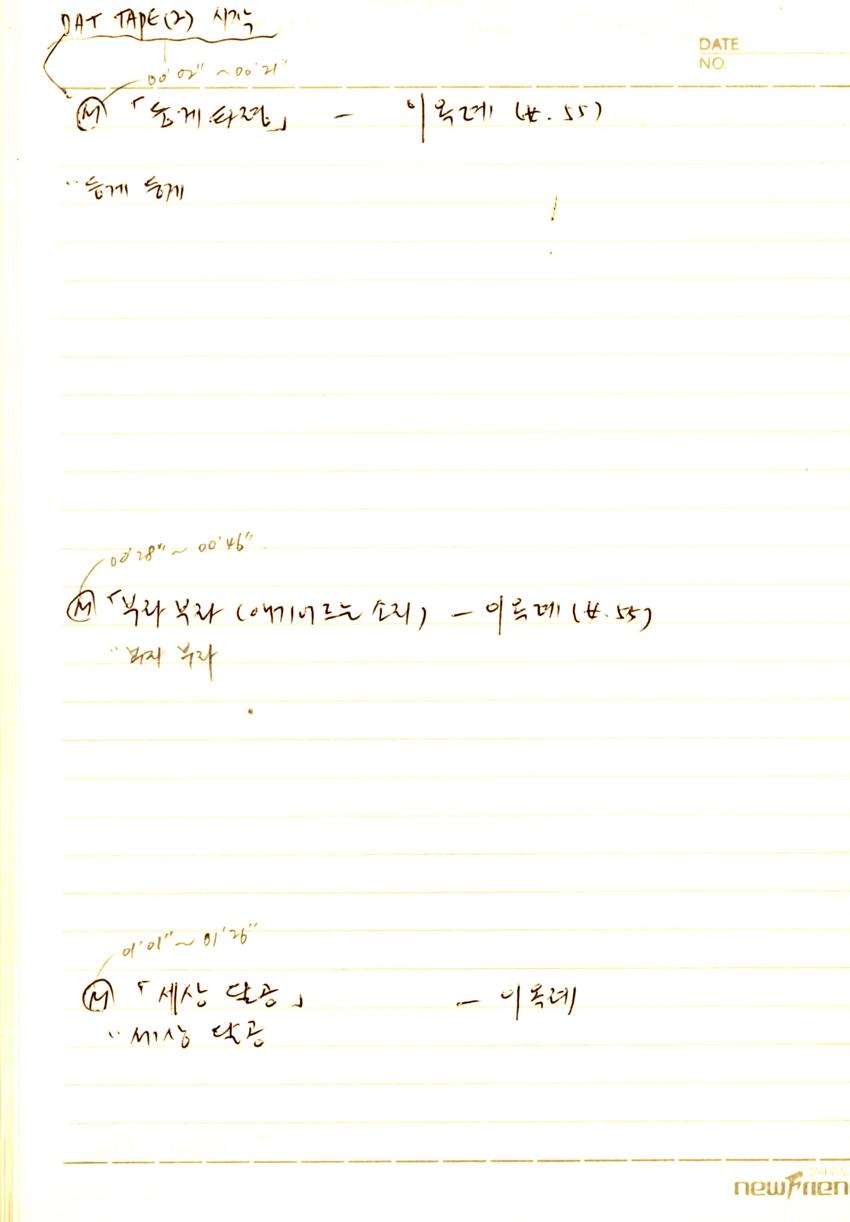 DAT TAPE(2) 시작
DATE
NO.
00'02" ~ 00'21"
Ⓜ 「둥게타령」 - 이옥례 (女. 55)
"둥게 둥게
00'28" ~ 00'46"
Ⓜ 「부라 부라 (애기어르는 소리) - 이옥례 (女. 55)
"부라 부라
01'01" ~ 01'26"
Ⓜ 「세상 달공」 - 이옥례
"세상 달공
newFrien